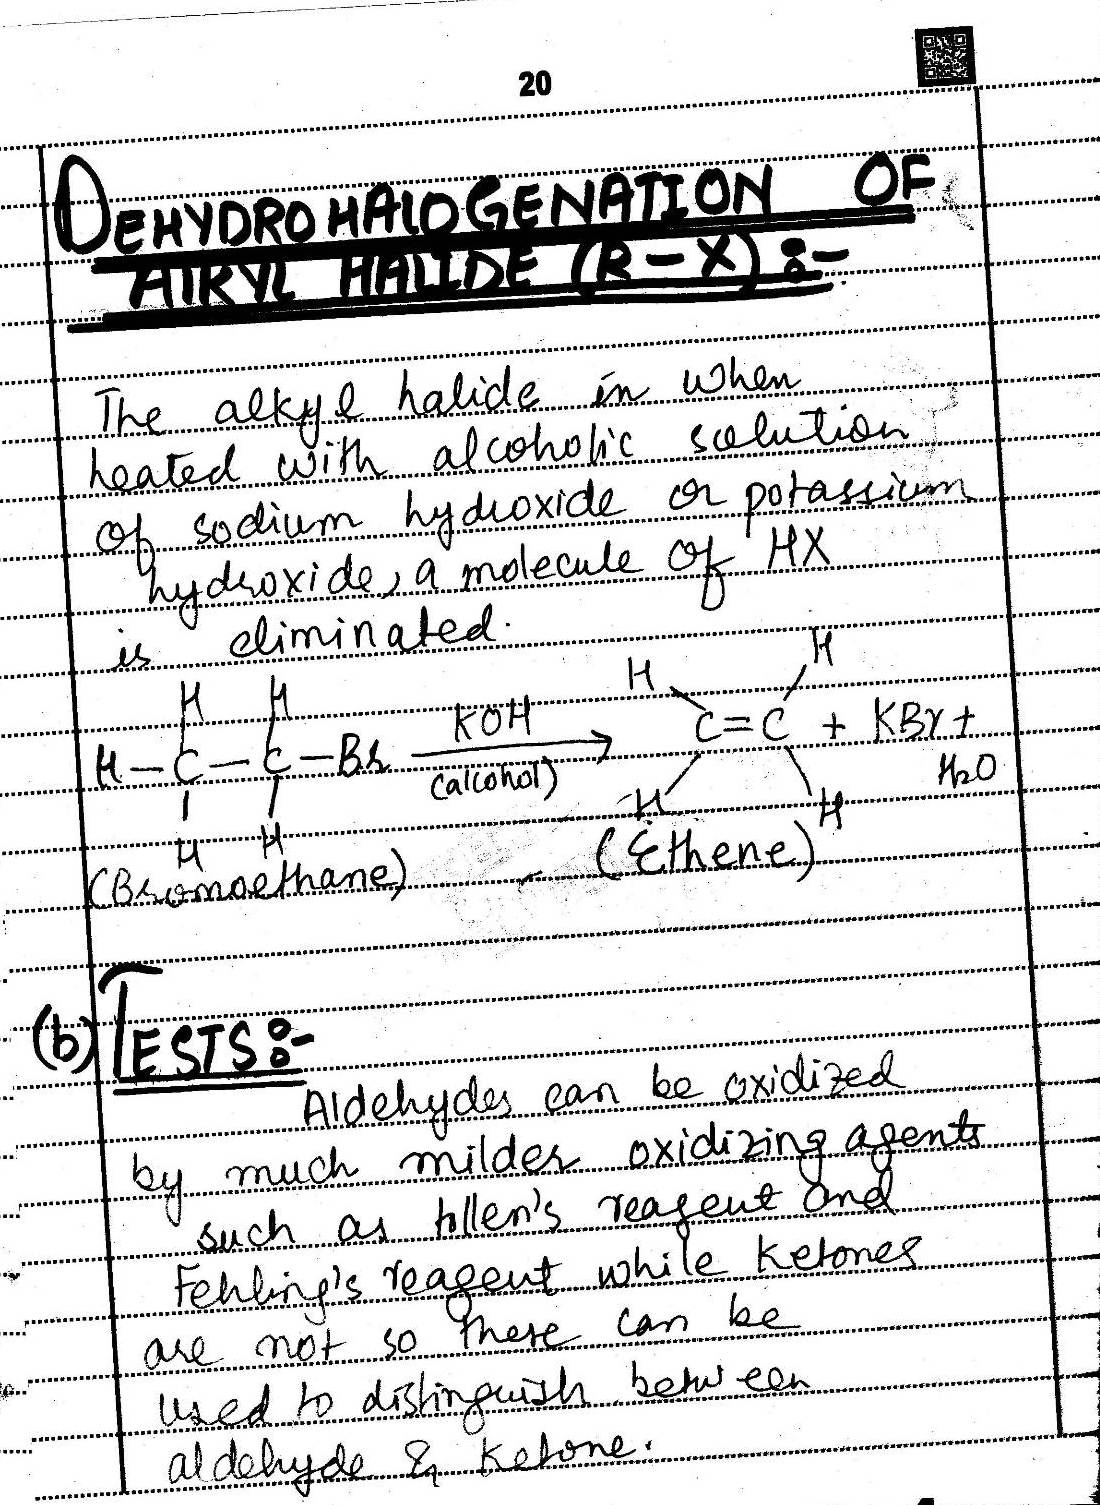 20
DEHYDROHALOGENATION OF
ALKYL HALIDE (R-X):-
The alkyl halide in when
heated with alcoholic solution
of sodium hydroxide or potassium
hydroxide, a molecule of HX
is eliminated.
H H H H
H-C-C-Br KOH C=C + KBr +
(alcohol) H2O
H H H H
(Bromoethane) (Ethene)
(b) TESTS:-
Aldehydes can be oxidized
by much milder oxidizing agents
such as tollen's reagent and
Fehling's reagent while Ketones
are not so these can be
used to distinguish between
aldehyde & Ketone.